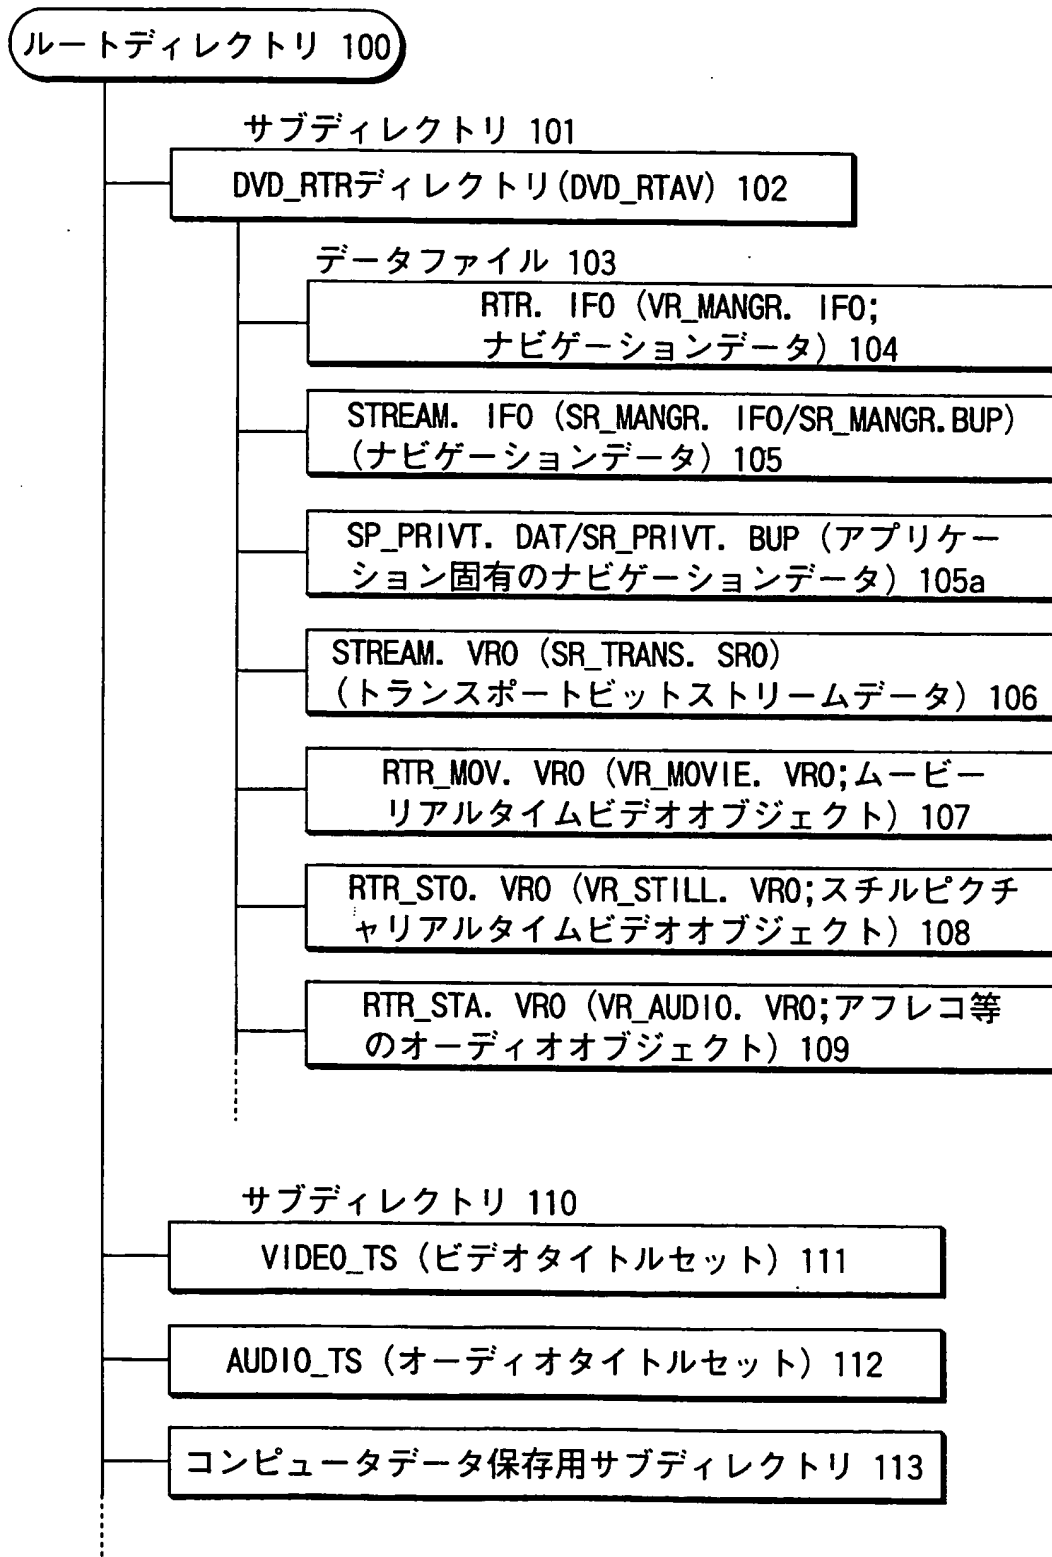 ルートディレクトリ 100
サブディレクトリ 101
DVD_RTRディレクトリ(DVD_RTAV) 102
データファイル 103
RTR. IFO (VR_MANGR. IFO;
ナビゲーションデータ) 104
STREAM. IFO (SR_MANGR. IFO/SR_MANGR.BUP)
(ナビゲーションデータ) 105
SP_PRIVT. DAT/SR_PRIVT. BUP (アプリケー
ション固有のナビゲーションデータ) 105a
STREAM. VRO (SR_TRANS. SRO)
(トランスポートビットストリームデータ) 106
RTR_MOV. VRO (VR_MOVIE. VRO;ムービー
リアルタイムビデオオブジェクト) 107
RTR_STO. VRO (VR_STILL. VRO;スチルピクチ
ャリアルタイムビデオオブジェクト) 108
RTR_STA. VRO (VR_AUDIO. VRO;アフレコ等
のオーディオオブジェクト) 109
サブディレクトリ 110
VIDEO_TS (ビデオタイトルセット) 111
AUDIO_TS (オーディオタイトルセット) 112
コンピュータデータ保存用サブディレクトリ 113